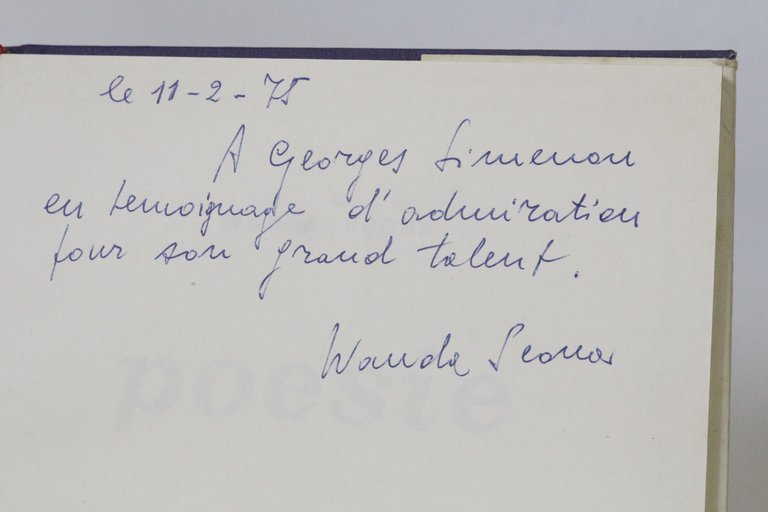 le 11-2-75
A Georges Simenon
en temoignage d'admiration
pour son grand talent.
Wanda
poesie